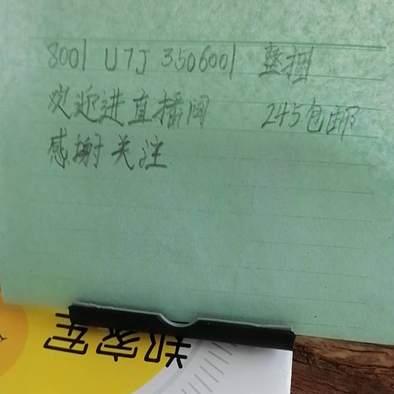 8001 U7J 3506001 整捆
欢迎进直播间 245包邮
感谢关注
郑家军